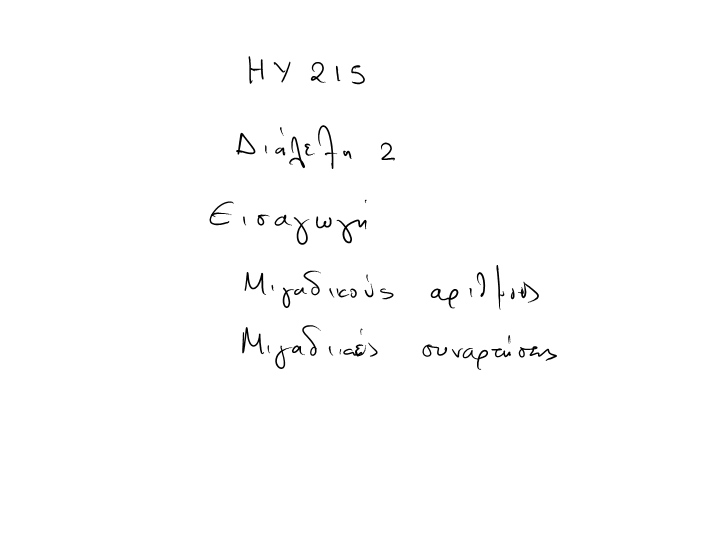 ΗΥ 215
Διάλεξη 2
Εισαγωγή
Μιγαδικούς αριθμούς
Μιγαδικές συναρτήσεις